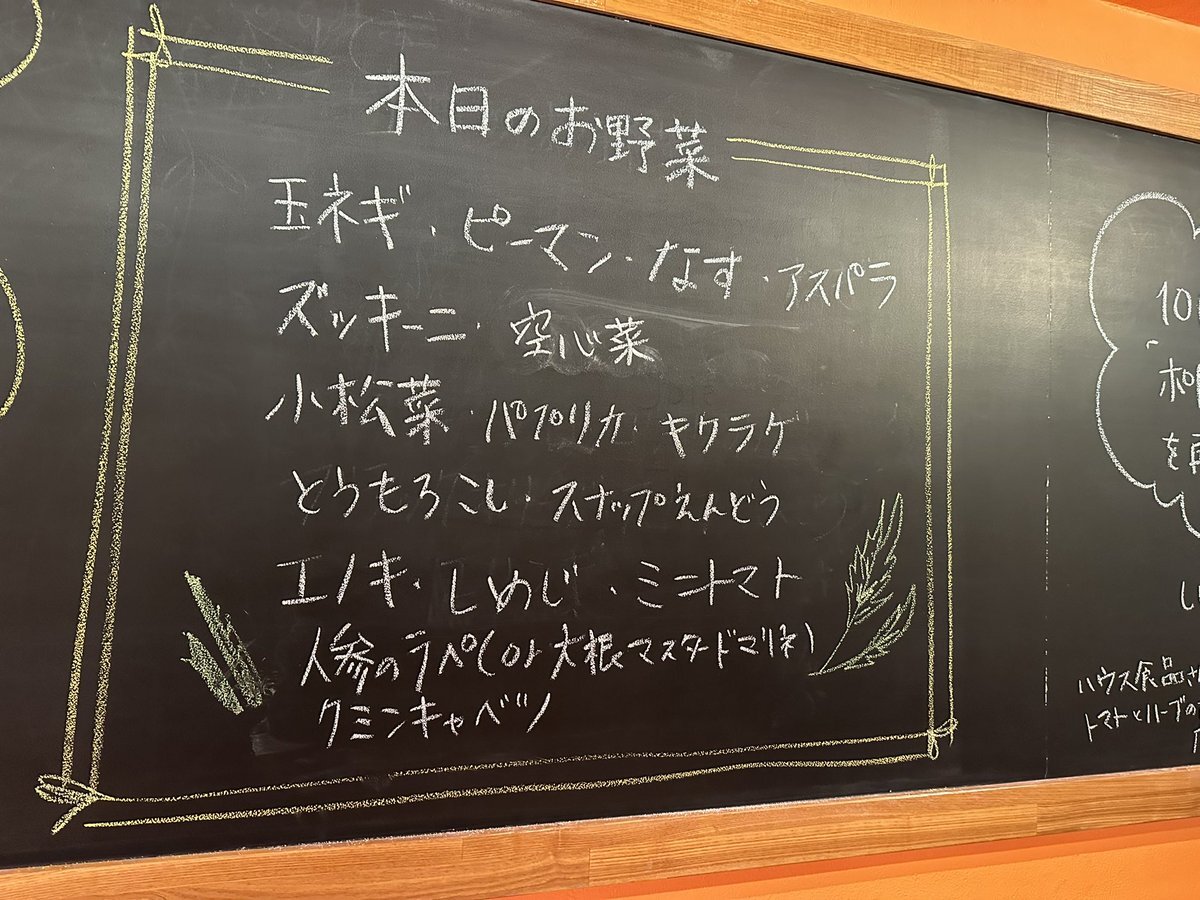 本日のお野菜
玉ネギ・ピーマン・なす・アスパラ
ズッキーニ・空心菜
小松菜・パプリカ・キクラゲ
とうもろこし・スナップえんどう
エノキ・しめじ・ミニトマト
人参のラペ(or大根マスタードマリネ)
クミンキャベツ
10
ポ
を
し
ハウス食品さ
トマトとハーブの